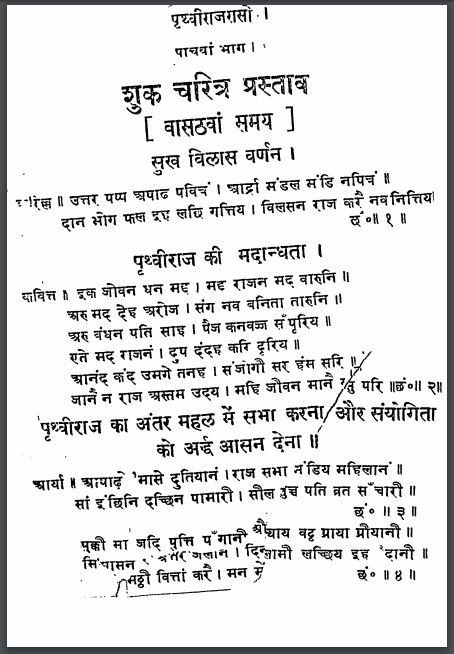 पृथ्वीराजरासो ।
पाचवां भाग ।
शुक चरित्र प्रस्ताव
[ वासठवां समय ]
सुख विलास वर्णन ।
॥ उत्तर पष्प अषाढ पवित्रं । आर्द्रा मंडल मंडि नषित्रं ॥
दान भोग फल इह लछि गत्तिय । विलसन राज करै नवनित्तिय
छं० ॥ १ ॥
पृथ्वीराज की मदान्धता ।
कवित्त ॥ इक जोवन धन मद्द । मद्द राजन मद् वारुनि ॥
अरु मद् देह अरोज । संग नव बनिता तारुनि ॥
अरु बंधन पति साह । पैज कनवज्ज सँपूरिय ॥
एते मद् राजनं । दुष दंदह करि दूरिय ॥
आनंद कंद उमगे तनह । संजोगी सर हंस सरि ॥
जानै न राज अस्तम उदय । महि जीवन मानै परि ॥ छं० ॥ २ ॥
पृथ्वीराज का अंतर महल में सभा करना और संयोगिता
को अर्द्ध आसन देना ॥
आर्या ॥ आषाढ़े मासे दुतियानं । राज सभा मंडिय महिलानं ॥
सां इंछिनि दच्छिन पामारी । सील पति व्रत सँचारी ॥
छं० ॥ ३ ॥
सा जदि पुत्ति षट्ट प्राया प्रीयानी ॥
लच्छिय इह दानी ॥
वित्तां करै । मन में
छं० ॥ ४ ॥